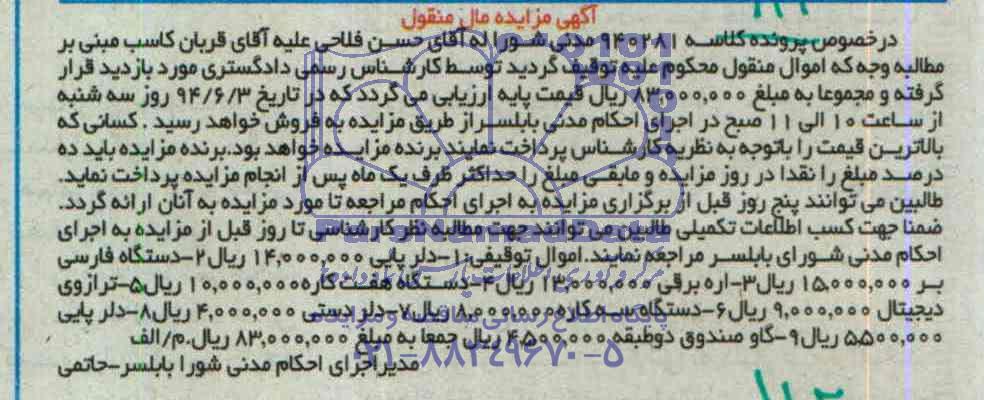 آگهی مزایده مال منقول
درخصوص پرونده کلاسه ۹۴۰۲۸۱ مدنی شورا له آقای حسن فلاحی علیه آقای قربان کاسب مبنی بر
مطالبه وجه که اموال منقول محکوم علیه توقیف گردید توسط کارشناس رسمی دادگستری مورد بازدید قرار
گرفته و مجموعا به مبلغ ۸۳,۰۰۰,۰۰۰ ریال قیمت پایه ارزیابی می گردد که در تاریخ ۹۴/۶/۳ روز سه شنبه
از ساعت ۱۰ الی ۱۱ صبح در اجرای احکام مدنی بابلسر از طریق مزایده به فروش خواهد رسید . کسانی که
بالاترین قیمت را باتوجه به نظریه کارشناس پرداخت نمایند برنده مزایده خواهد بود.برنده مزایده باید ده
درصد مبلغ را نقدا در روز مزایده و مابقی مبلغ را حداکثر ظرف یک ماه پس از انجام مزایده پرداخت نماید.
طالبین می توانند پنج روز قبل از برگزاری مزایده به اجرای احکام مراجعه تا مورد مزایده به آنان ارائه گردد.
ضمنا جهت کسب اطلاعات تکمیلی طالبین می توانند جهت مطالبه نظر کارشناسی تا روز قبل از مزایده به اجرای
احکام مدنی شورای بابلسر مراجعه نمایند.اموال توقیفی:۱-دلر پایی ۱۴,۰۰۰,۰۰۰ ریال۲-دستگاه فارسی
بر ۱۵,۰۰۰,۰۰۰ ریال۳-اره برقی ۱۳,۰۰۰,۰۰۰ ریال۴-دستگاه هفت کاره۱۰,۰۰۰,۰۰۰ ریال۵-ترازوی
دیجیتال ۹,۰۰۰,۰۰۰ ریال۶-دستگاه سه کاره۸,۰۰۰,۰۰۰ ریال۷-دلر دستی ۴,۰۰۰,۰۰۰ ریال۸-دلر پایی
۵,۵۰۰,۰۰۰ ریال۹-گاو صندوق دوطبقه ۴,۵۰۰,۰۰۰ ریال جمعا به مبلغ ۸۳,۰۰۰,۰۰۰ ریال.م/الف
مدیراجرای احکام مدنی شورا بابلسر-حاتمی
۰۲۱-۸۸۳۴۹۶۷۰-۵